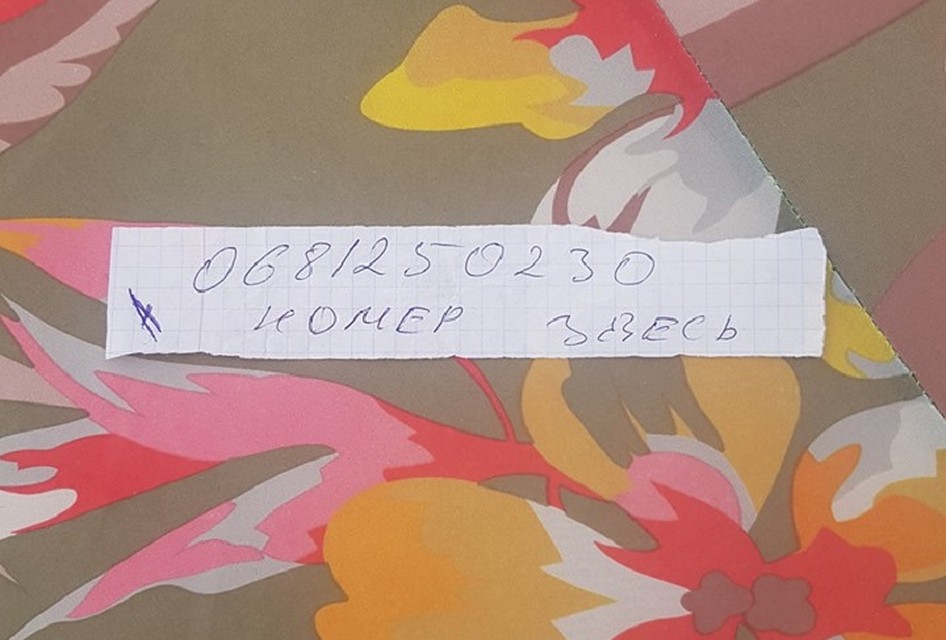 0681250230
НОМЕР ЗДЕСЬ